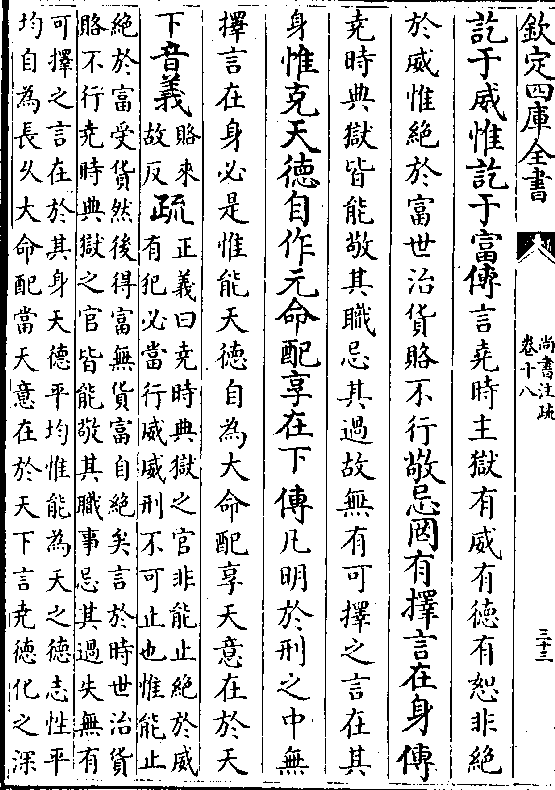 欽定四庫全書
尚書注疏
卷十八
三十三
訖于威惟訖于富傳言堯時主獄有威有德有恕非絶
於威惟絶於富世治貨賂不行敬忌罔有擇言在身傳
堯時典獄皆能敬其職忌其過故無有可擇之言在其
身惟克天德自作元命配享在下傳凡明於刑之中無
擇言在身必是惟能天德自為大命配享天意在於天
下音義賂來故反疏正義曰堯時典獄之官非能止絶於威有犯必當行威威刑不可止也惟能止
絶於富受貨然後得富無貨富自絶矣言於時世治貨
賂不行堯時典獄之官皆能敬其職事忌其過失無有
可擇之言在於其身天德平均惟能為天之德志性平
均自為長久大命配當天意在於天下言堯德化之深